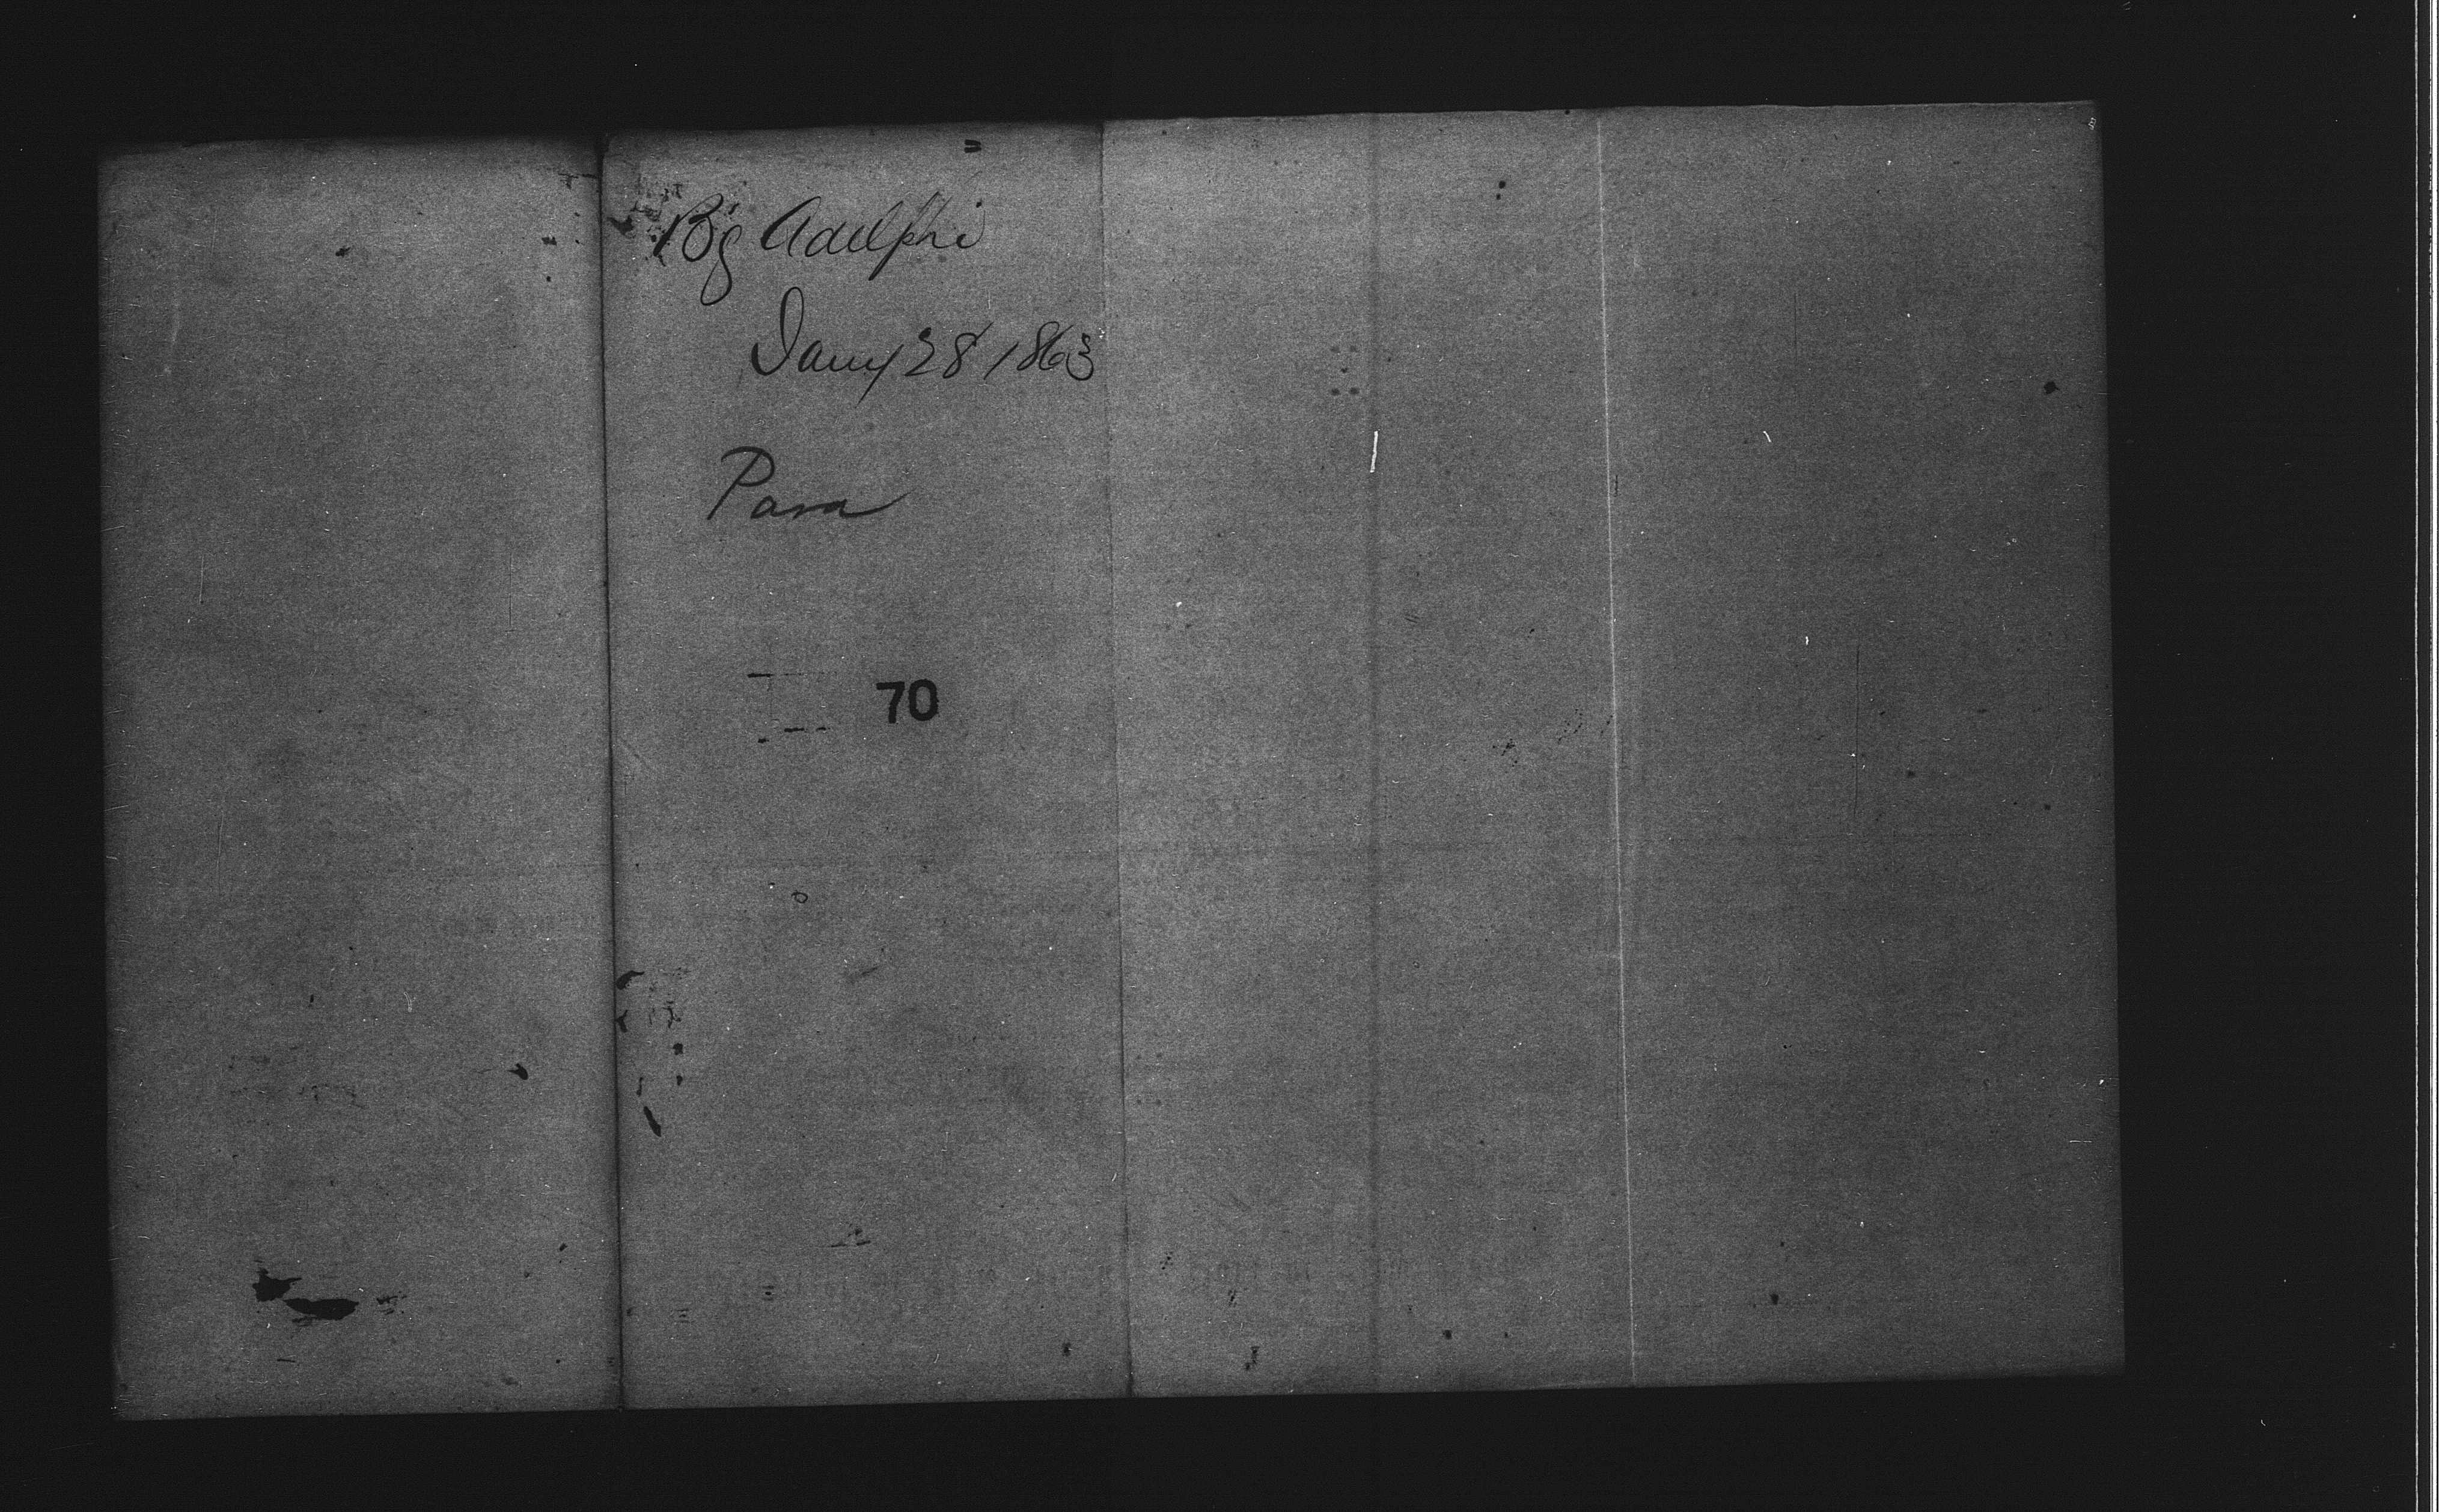 Bg Adelphi
Jany 28 1863
Para
70